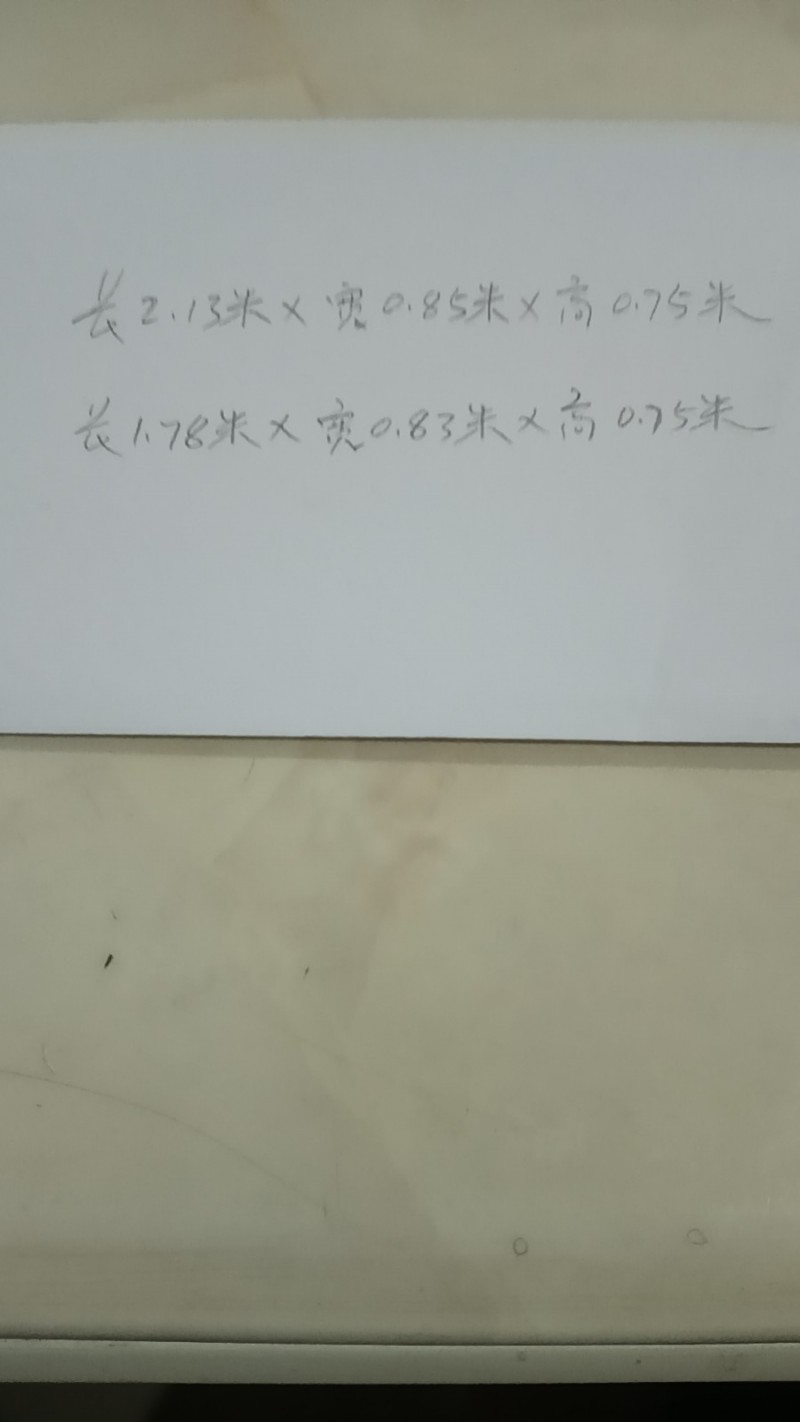 长2.13米×宽0.85米×高0.75米
长1.78米×宽0.83米×高0.75米